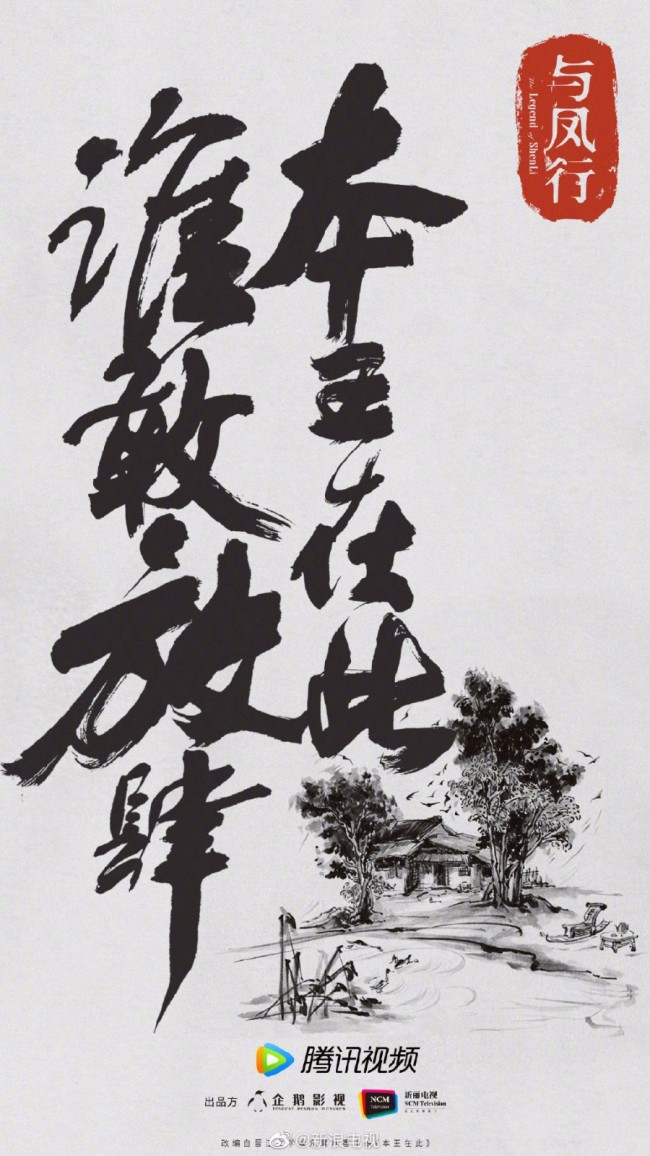 与凤行
The Legend of ShenLi
本王在此
谁敢放肆
腾讯视频
出品方 企鹅影视 NCM TELEVISION 新丽电视 NCM Television
@新浪电视
改编自晋江 本王在此》